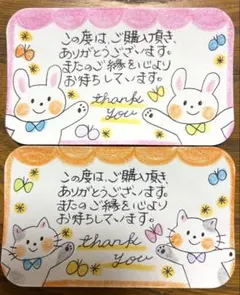 この度は、ご購入頂き、
ありがとうございます。
またのご縁を心より
お待ちしています。
thank
you
この度は、ご購入頂き、
ありがとうございます。
またのご縁を心より
お待ちしています。
thank
you